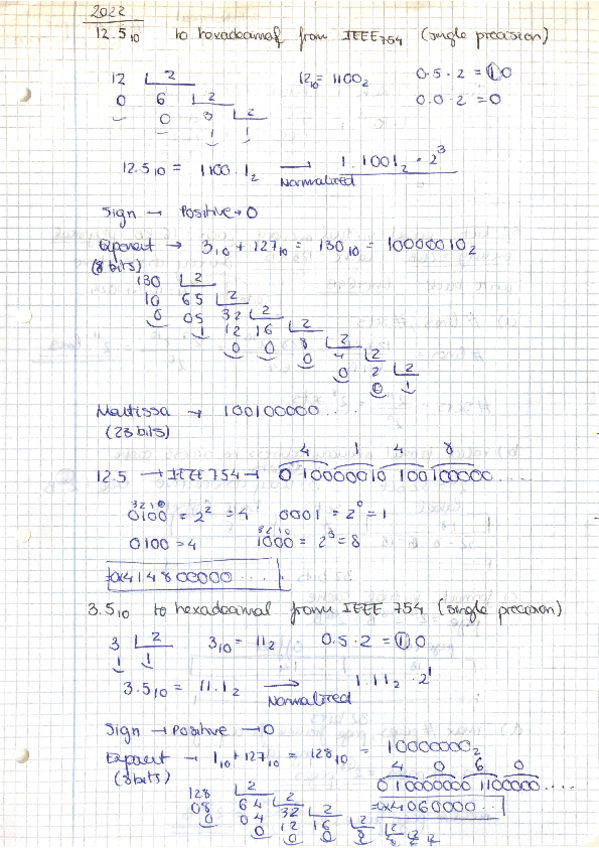 2022
12.5₁₀ to hexadecimal from IEEE754 (single precision)
12 |2 12₁₀= 1100₂ 0.5·2 = ①0
0 6 |2 0.0·2 = 0
0 3 |2
1 1
12.5₁₀ = 1100.1₂ → 1.1001₂ · 2³
Normalized
Sign → Positive → 0
Exponent → 3₁₀ + 127₁₀ = 130₁₀ = 10000010₂
(8 bits)
130 |2
10 65 |2
0 05 32 |2
1 12 16 |2
0 0 8 |2
0 4 |2
0 2 |2
0 1
Mantissa → 100100000...
(23 bits)
4 1 4 8
12.5 → IEEE754 → 0 10000010 100100000....
3210
0100 = 2² = 4 0001 = 2⁰ = 1
3210
0100 = 4 1000 = 2³ = 8
0x414800000...
3.5₁₀ to hexadecimal from IEEE 754 (single precision)
3 |2 3₁₀ = 11₂ 0.5·2 = ①0
1 1
3.5₁₀ = 11.1₂ → 1.11₂ · 2¹
Normalized
Sign → Positive → 0
Exponent → 1₁₀ + 127₁₀ = 128₁₀ = 10000000₂
(8 bits)
4 0 6 0
0 10000000 1100000....
0x4060000...
128 |2
08 64 |2
0 04 32 |2
0 12 16 |2
0 0 8